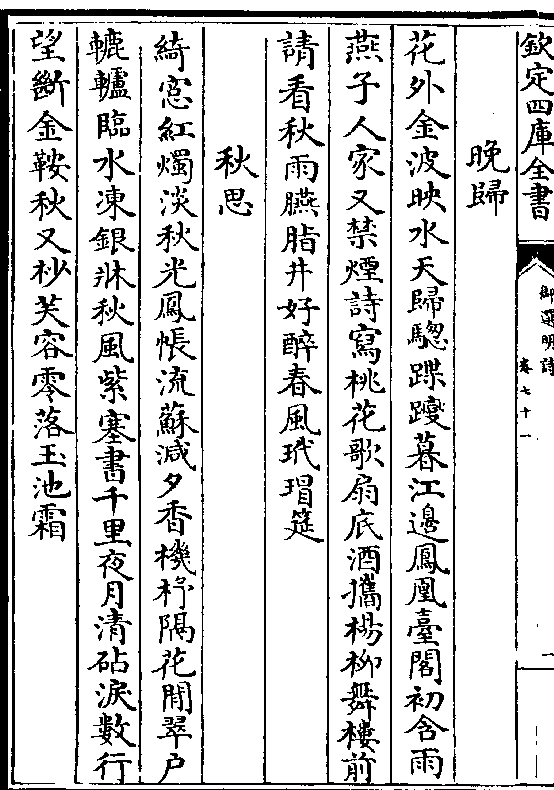 欽定四庫全書
御選明詩
卷七十一
晚歸
花外金波映水天歸驄蹀躞暮江邊鳳凰臺閣初含雨
燕子人家又禁煙詩寫桃花歌扇底酒攜楊柳舞樓前
請看秋雨臙脂井好醉春風玳瑁筵
秋思
綺窓紅燭淡秋光鳳帳流蘇減夕香機杼隔花閒翠户
轆轤臨水凍銀牀秋風紫塞書千里夜月清砧淚數行
望斷金鞍秋又杪芙容零落玉池霜